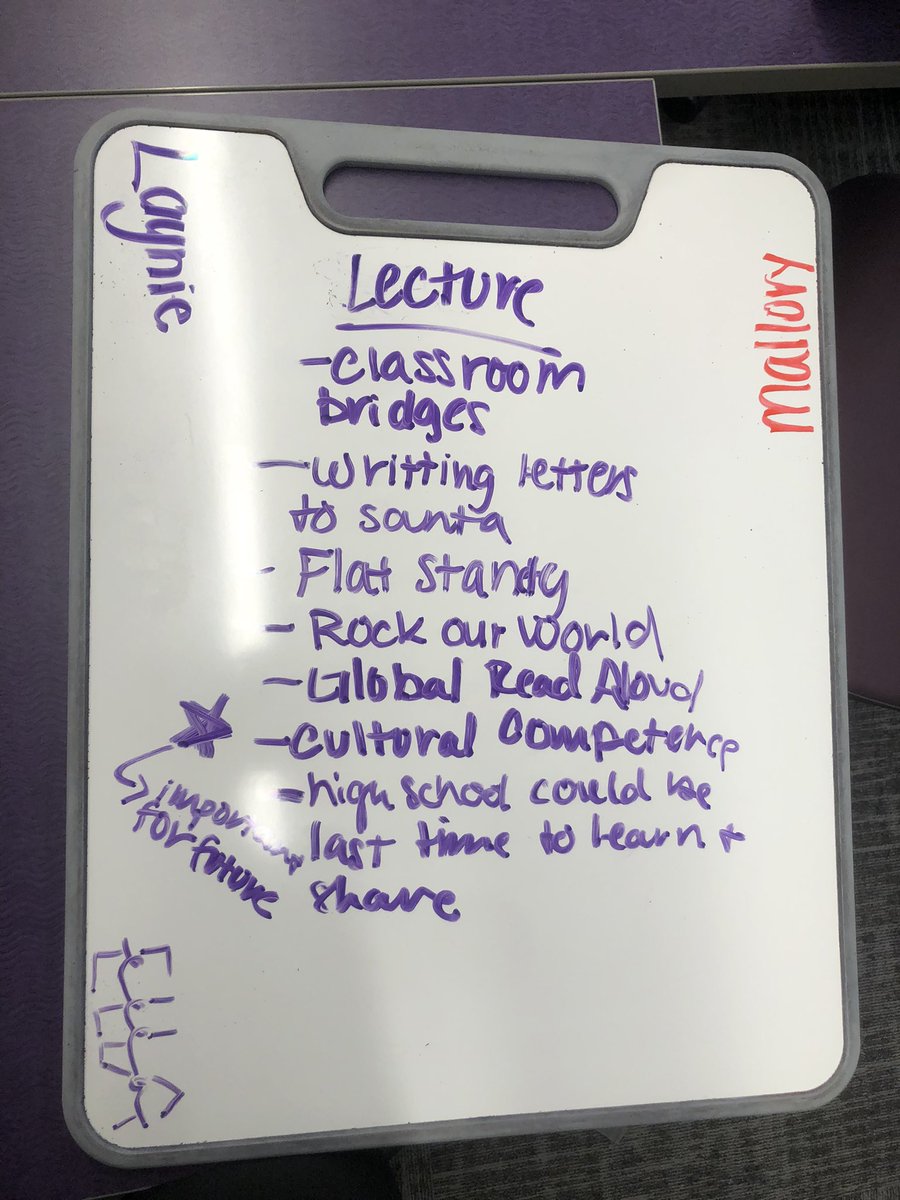 Laynie
Mallory
Lecture
- Classroom
bridges
- Writting letters
to santa
- Flat Standy
- Rock our world
- Global Read Aloud
- Cultural Competence
→ important
for future
- high school could be
last time to learn +
share